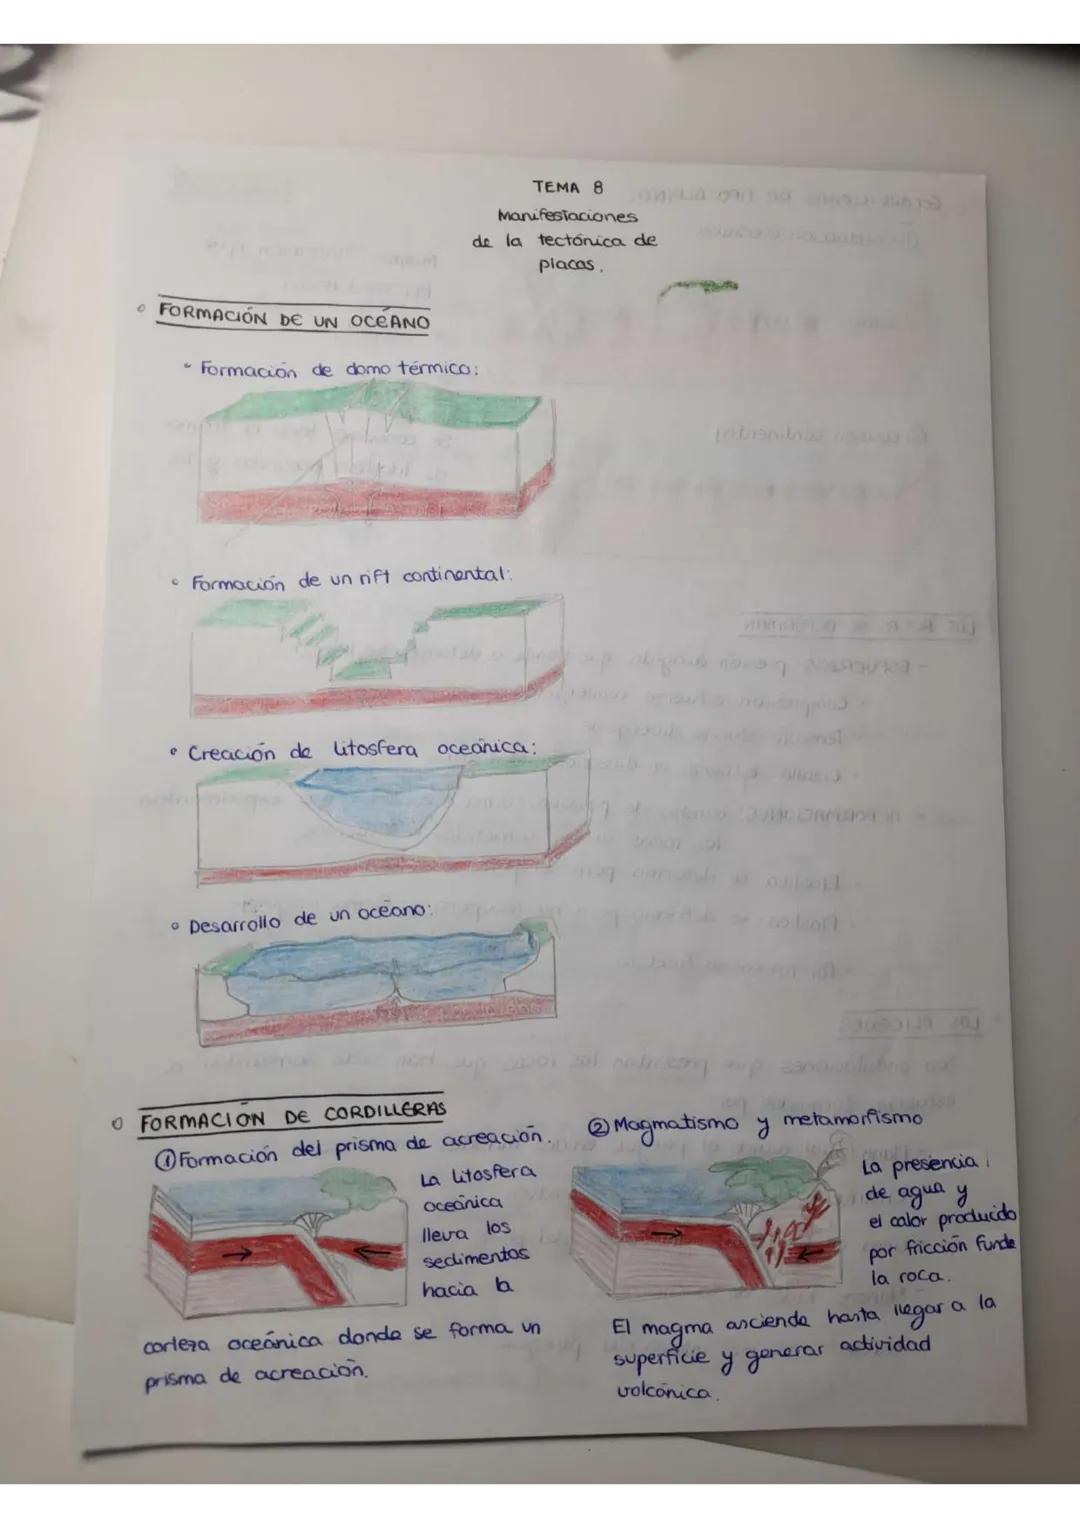 TEMA 8
Manifestaciones
de la tectónica de
placas.
FORMACIÓN DE UN OCÉANO
Formación de domo térmico:
Formación de un rift continental:
Creación de litosfera oceánica:
Desarrollo de un océano:
FORMACIÓN DE CORDILLERAS
① Formación del prisma de acreación.
La litosfera
oceánica
lleva los
sedimentos
hacia la
corteza oceánica donde se forma un
prisma de acreación.
② Magmatismo y metamorfismo
La presencia
de agua y
el calor producido
por fricción funde
la roca.
El magma asciende hasta llegar a la
superficie y generar actividad
volcánica.